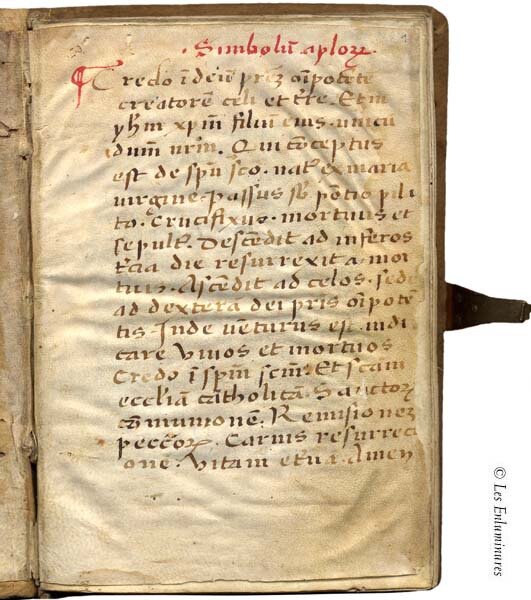 · Simbolũ aploꝝ ·
Credo ĩ deũ prẽʒ oĩpotẽte
creatorẽ celi et tr̃e. Et in
yhm̃ xpm̃ filiuʒ eius · unicũ
dum̃ nrm̃. Qui cõceptus
est de spũ sc̃o · nat᷒ ex maria
virgine · passus sb̃ põtio pila
to · Crucifixuz · mortuus et
sepult᷒. Descẽdit ad inferos
t̃cia die resurrexit a mor
tuiz · Ascẽdit ad celos · sede
ad dexterã dei pr̃is oĩpotẽ
tis Inde vẽturus est · iudi
care vivos et mortuos
Credo ĩ spm̃ scm̃. Et scam̃
eccliã catholicã. Sanctoꝝ
cõmunionẽ. Remisionez
pecc̃oꝝ. Carnis resurrecti
one. Vitam et̃na. Amen
© Les Enluminures